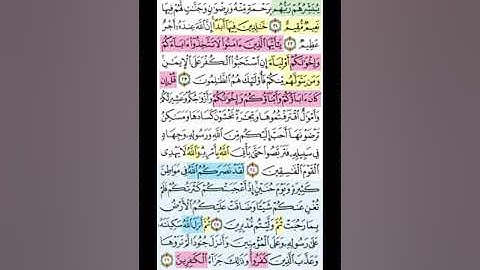 يُبَشِّرُهُمْ رَبُّهُم بِرَحْمَةٍ مِّنْهُ وَرِضْوَٰنٍ وَجَنَّـٰتٍ لَّهُمْ فِيهَا
نَعِيمٌ مُّقِيمٌ ٢١ خَـٰلِدِينَ فِيهَآ أَبَدًا إِنَّ ٱللَّهَ عِندَهُۥٓ أَجْرٌ
عَظِيمٌ ٢٢ يَـٰٓأَيُّهَا ٱلَّذِينَ ءَامَنُوا۟ لَا تَتَّخِذُوٓا۟ ءَابَآءَكُمْ
وَإِخْوَٰنَكُمْ أَوْلِيَآءَ إِنِ ٱسْتَحَبُّوا۟ ٱلْكُفْرَ عَلَى ٱلْإِيمَـٰنِ
وَمَن يَتَوَلَّهُم مِّنكُمْ فَأُو۟لَـٰٓئِكَ هُمُ ٱلظَّـٰلِمُونَ ٢٣ قُلْ إِن
كَانَ ءَابَآؤُكُمْ وَأَبْنَآؤُكُمْ وَإِخْوَٰنُكُمْ وَأَزْوَٰجُكُمْ وَعَشِيرَتُكُمْ
وَأَمْوَٰلٌ ٱقْتَرَفْتُمُوهَا وَتِجَـٰرَةٌ تَخْشَوْنَ كَسَادَهَا وَمَسَـٰكِنُ
تَرْضَوْنَهَآ أَحَبَّ إِلَيْكُم مِّنَ ٱللَّهِ وَرَسُولِهِۦ وَجِهَادٍ
فِى سَبِيلِهِۦ فَتَرَبَّصُوا۟ حَتَّىٰ يَأْتِىَ ٱللَّهُ بِأَمْرِهِۦ وَٱللَّهُ لَا يَهْدِى
ٱلْقَوْمَ ٱلْفَـٰسِقِينَ ٢٤ لَقَدْ نَصَرَكُمُ ٱللَّهُ فِى مَوَاطِنَ
كَثِيرَةٍ وَيَوْمَ حُنَيْنٍ إِذْ أَعْجَبَتْكُمْ كَثْرَتُكُمْ فَلَمْ
تُغْنِ عَنكُمْ شَيْـًٔا وَضَاقَتْ عَلَيْكُمُ ٱلْأَرْضُ
بِمَا رَحُبَتْ ثُمَّ وَلَّيْتُم مُّدْبِرِينَ ٢٥ ثُمَّ أَنزَلَ ٱللَّهُ سَكِينَتَهُۥ
عَلَىٰ رَسُولِهِۦ وَعَلَى ٱلْمُؤْمِنِينَ وَأَنزَلَ جُنُودًا لَّمْ تَرَوْهَا
وَعَذَّبَ ٱلَّذِينَ كَفَرُوا۟ وَذَٰلِكَ جَزَآءُ ٱلْكَـٰفِرِينَ ٢٦